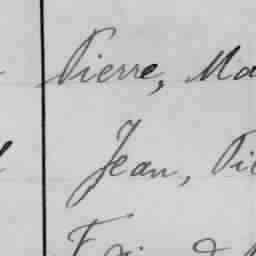 Pierre, Ma
Jean, Pie